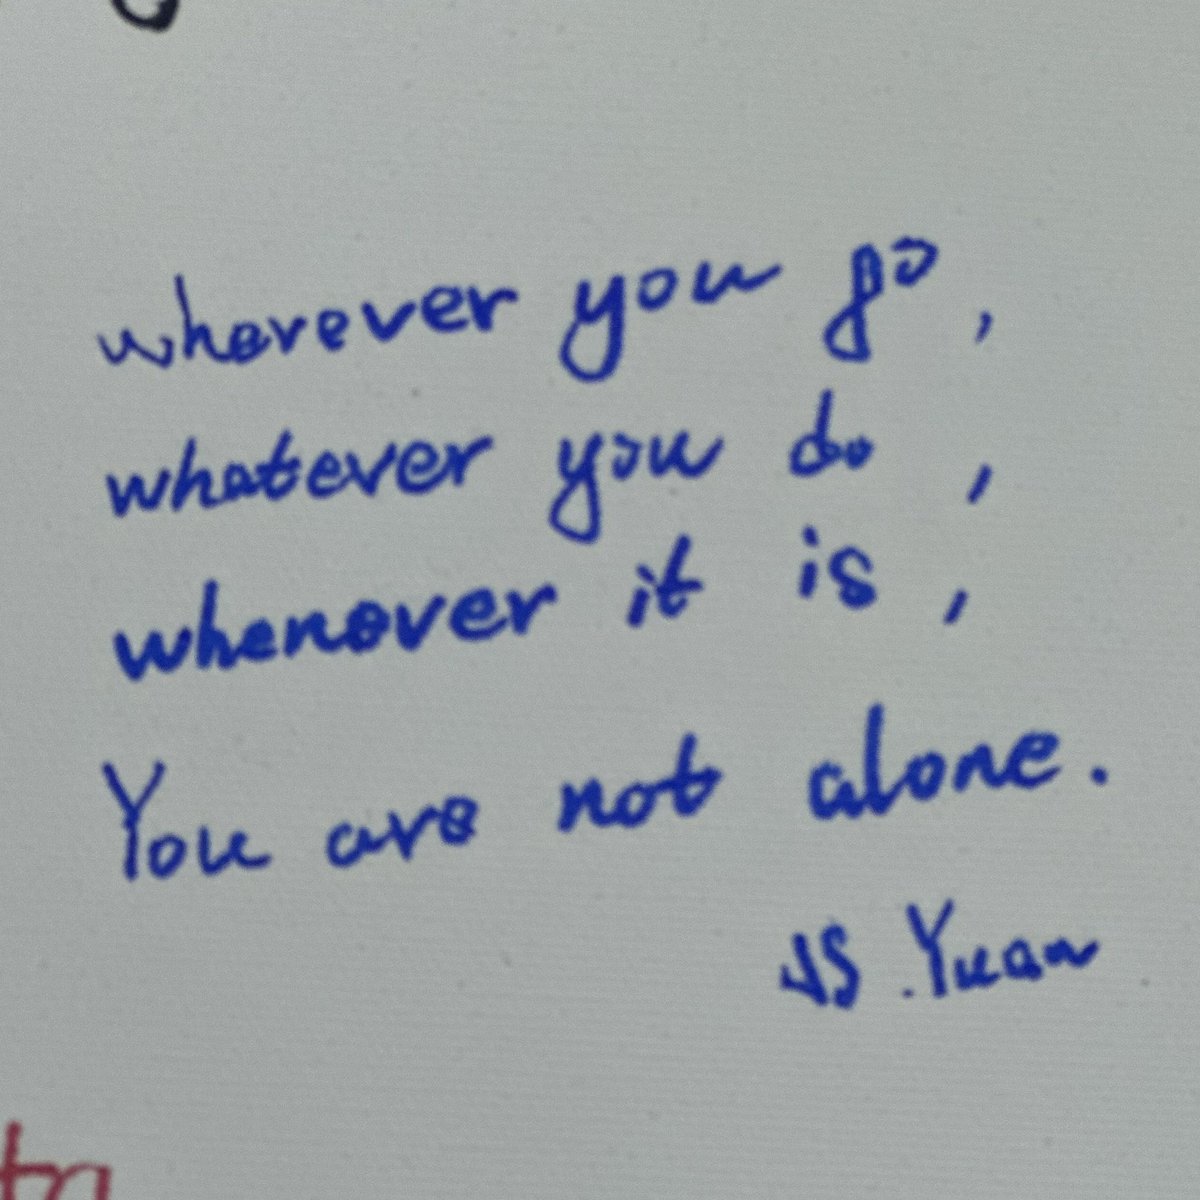 wherever you go,
whatever you do,
whenever it is,
You are not alone.
JS.Yuan